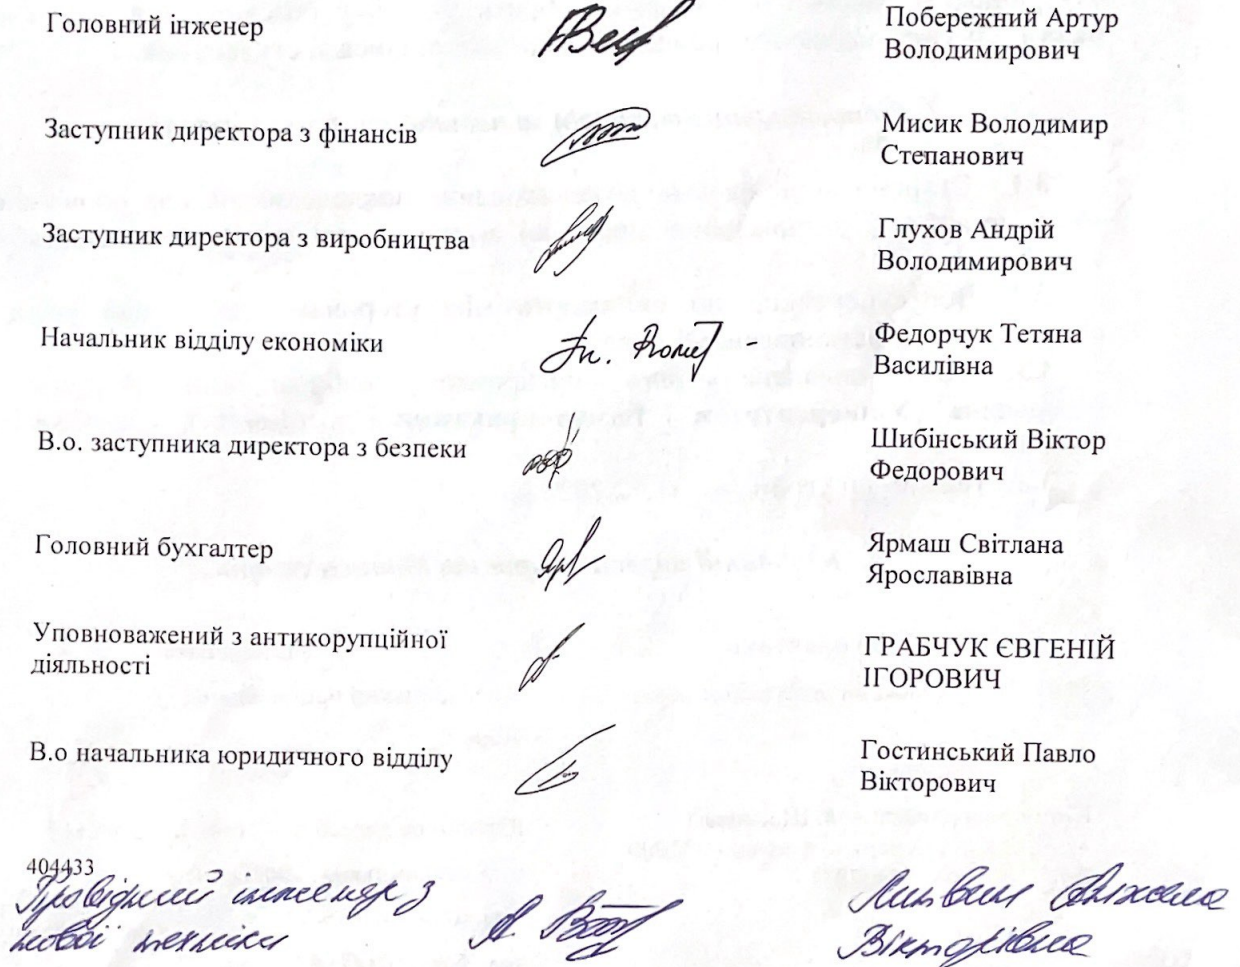 Головний інженер
Побережний Артур
Володимирович
Заступник директора з фінансів
Мисик Володимир
Степанович
Заступник директора з виробництва
Глухов Андрій
Володимирович
Начальник відділу економіки
Федорчук Тетяна
Василівна
В.о. заступника директора з безпеки
Шибінський Віктор
Федорович
Головний бухгалтер
Ярмаш Світлана
Ярославівна
Уповноважений з антикорупційної
діяльності
ГРАБЧУК ЄВГЕНІЙ
ІГОРОВИЧ
В.о начальника юридичного відділу
Гостинський Павло
Вікторович
404433
Провідний інженер з
нової техніки
Анжела
Вікторівна